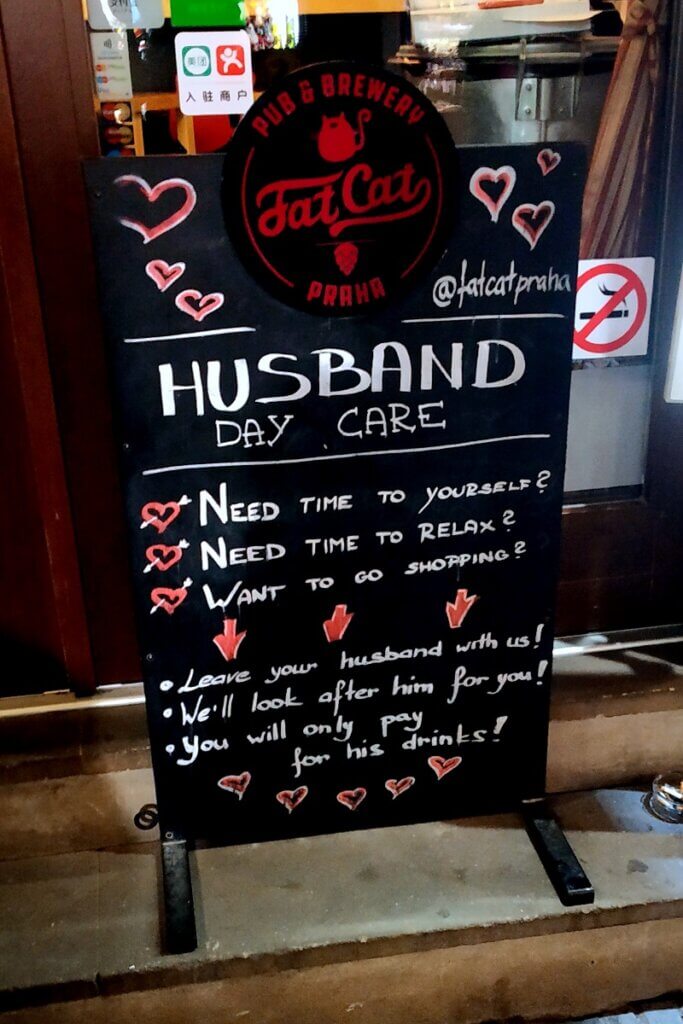 支付宝
美团
入驻商户
PUB & BREWERY
Fat Cat
PRAHA
@fatcatpraha
HUSBAND
DAY CARE
NEED TIME TO YOURSELF?
NEED TIME TO RELAX?
WANT TO GO SHOPPING?
• Leave your husband with us!
• We'll look after him for you!
• You will only pay
for his drinks!